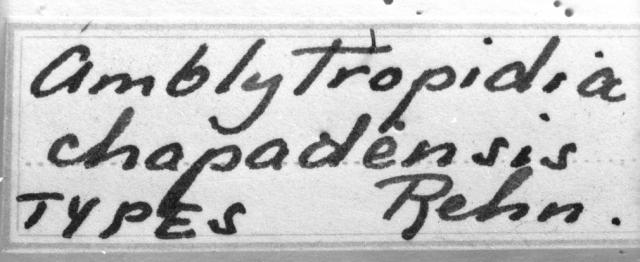 Amblytropidia
chapadensis
TYPES Rehn.